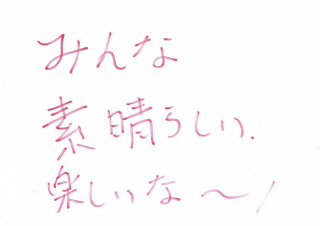 みんな
素晴らしい.
楽しいな～!